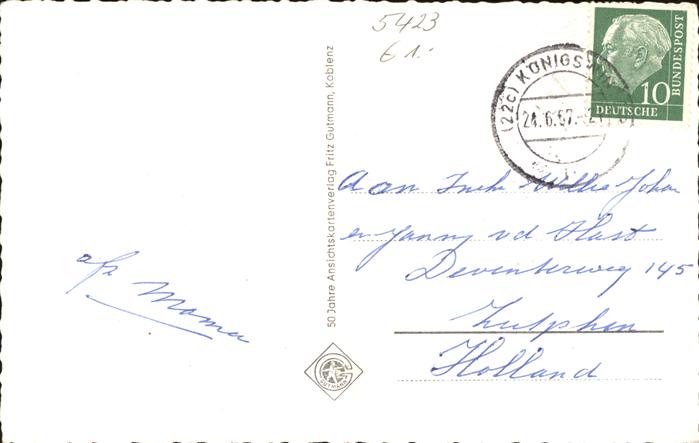 5423
6 1.-
(22c) KÖNIGSWI
24.6.57.-21
10
DEUTSCHE
BUNDESPOST
50 Jahre Ansichtskartenverlag Fritz Gutmann, Koblenz
GUTMANN
Aan Ineke Willie Johan
en Janny vd Hast
Deventerweg 145
Zutphen
Holland
Mama